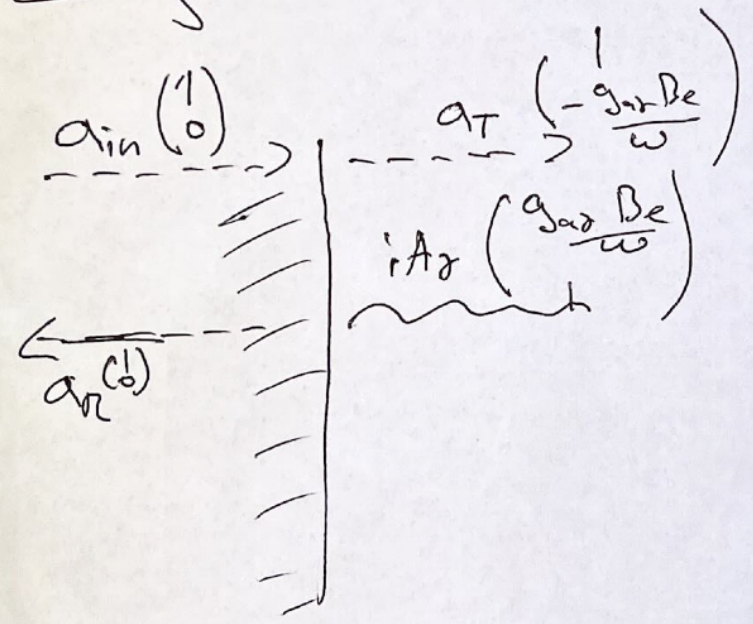 a_in (1 0)
a_T (1 -g_aγ B_e/ω)
iA_γ (g_aγ B_e/ω 1)
a_R (1 0)